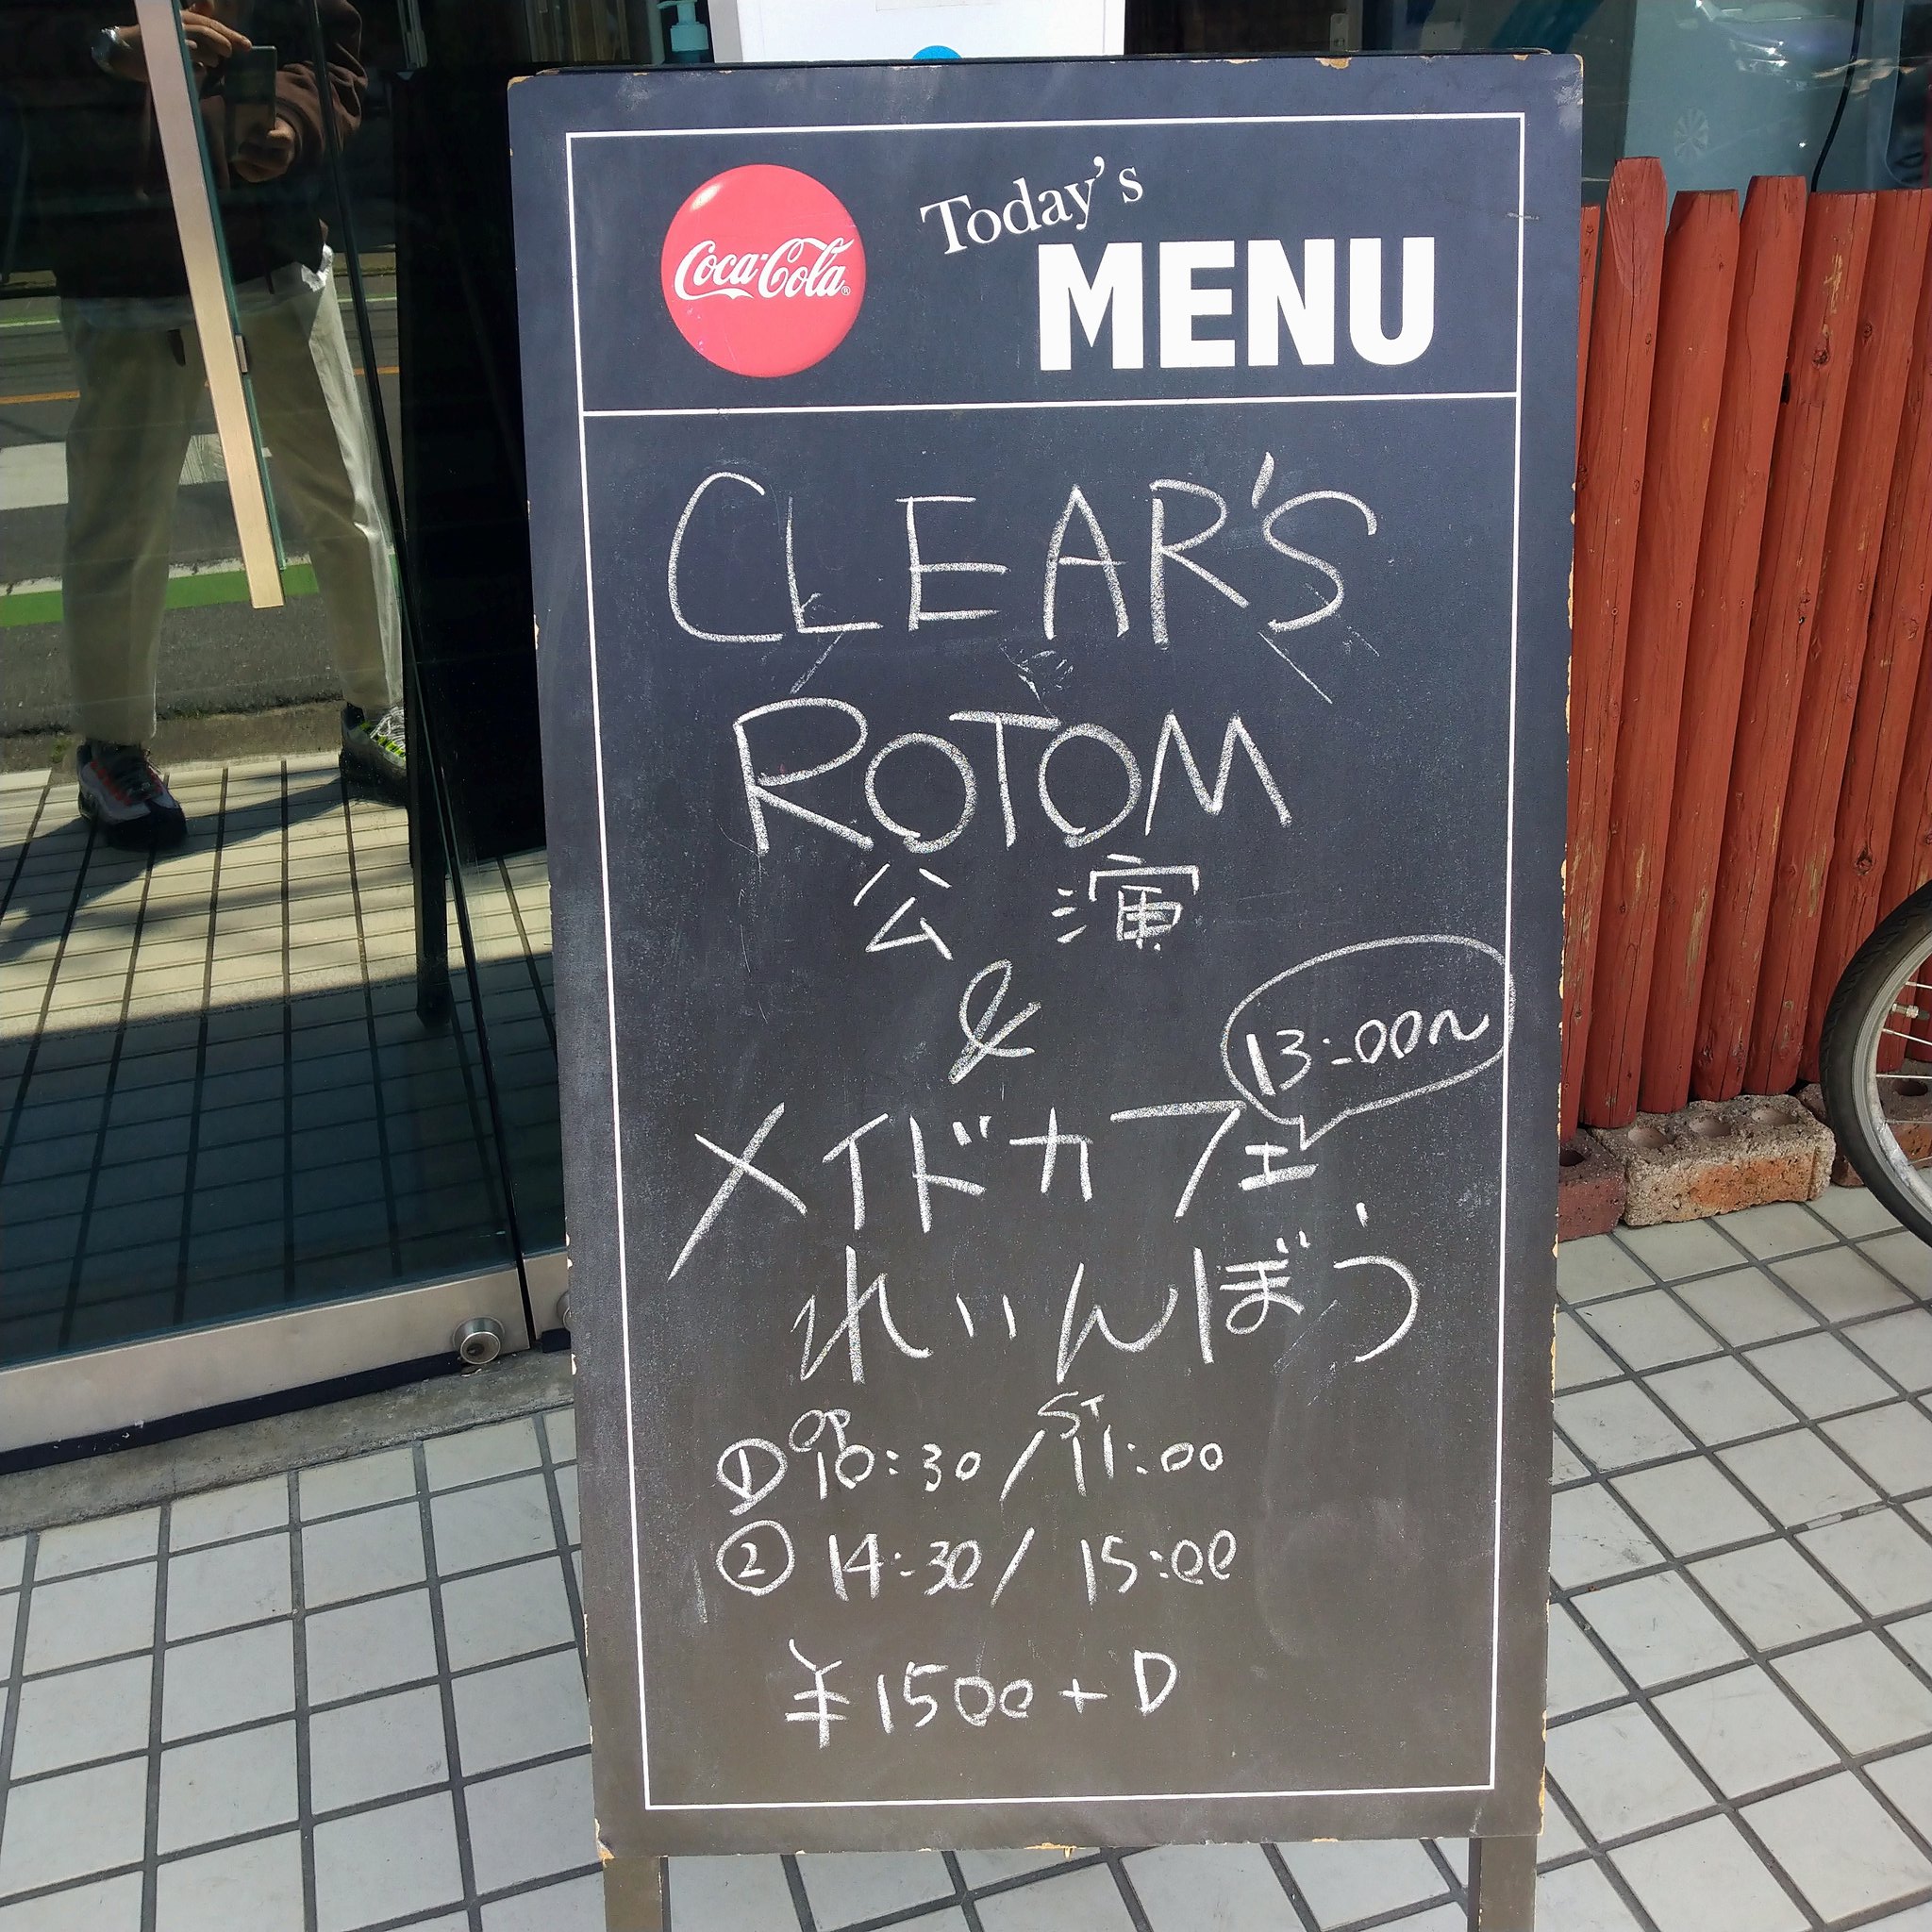 Coca-Cola®
Today's
MENU
CLEAR'S
ROTOM
公演
&
13:00~
メイドカフェ
れいんぼう
OP ST
① 10:30/11:00
② 14:30/15:00
¥1500+D